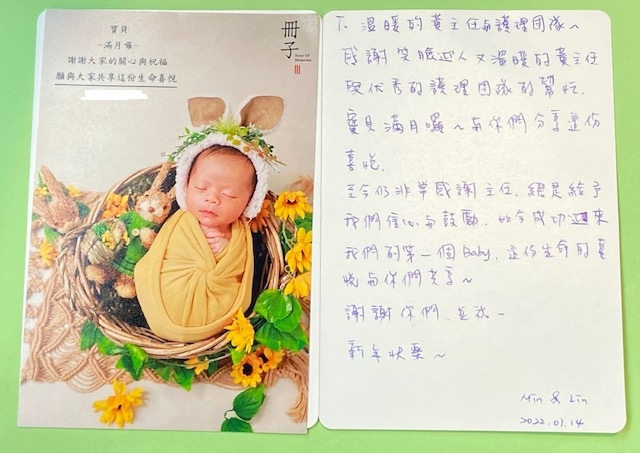 寶貝
~滿月囉~
謝謝大家的關心與祝福
願與大家共享這份生命喜悅
冊子
Story Of
Memories
To 溫暖的黃主任與護理團隊~
感謝笑臉迎人又溫暖的黃主任
與優秀的護理團隊的幫忙.
寶貝滿月囉~與你們分享這份
喜悅.
至今仍非常感謝主任,總是給予
我們信心與鼓勵.如今成功迎來
我們的第一個Baby,這份生命的喜
悅與你們共享~
謝謝你們,並祝~
新年快樂~
Min & Lin
2022.01.14